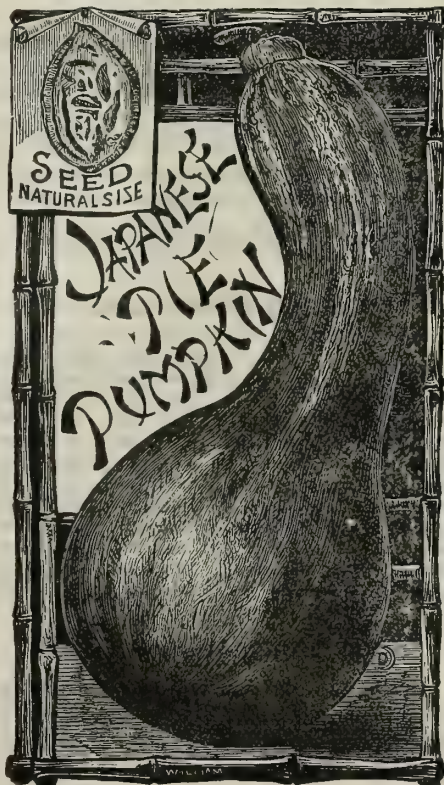 SEED
NATURAL SISE
JAPANESE
PIE
PUMPKIN
WILLIAM